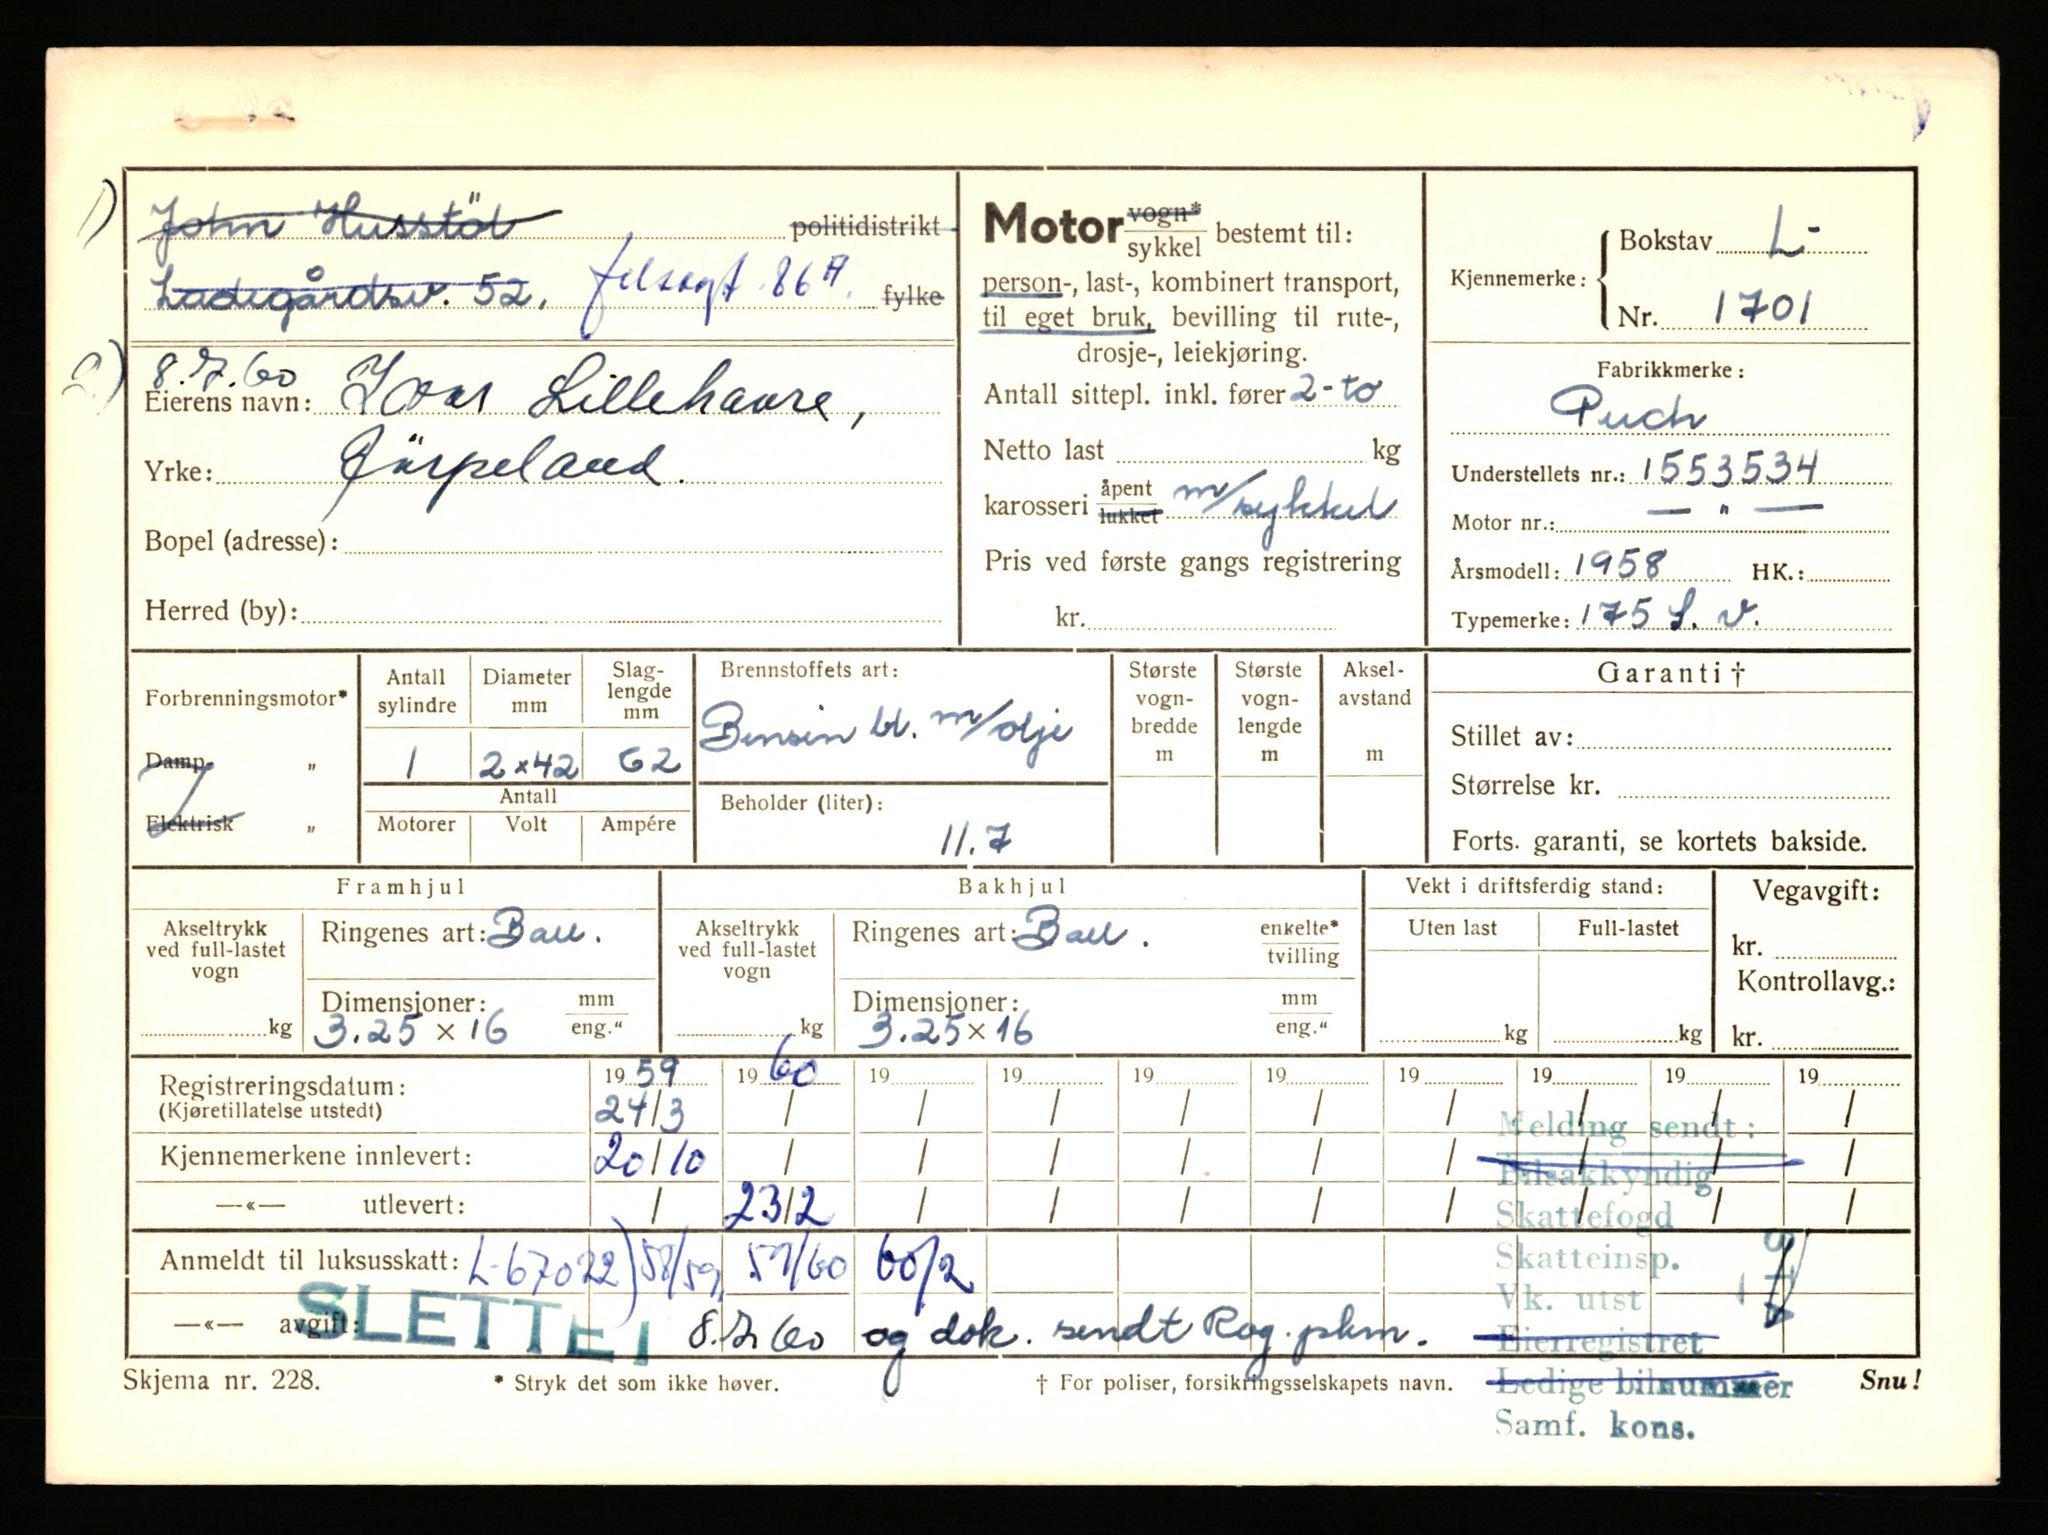 1) John Husstöl politidistrikt
Ladegårdsv. 52, 86 A. fylke
2) 8.7.60
Eierens navn: Ivar Lillehavre,
Yrke: Jörpeland.
Bopel (adresse):
Herred (by):
Motor vogn* / sykkel bestemt til:
person-, last-, kombinert transport,
til eget bruk, bevilling til rute-,
drosje-, leiekjøring.
Antall sittepl. inkl. fører 2-to
Netto last kg
karosseri åpent / lukket m/sykkel
Pris ved første gangs registrering
kr.
Kjennemerke: Bokstav L-
Nr. 1701
Fabrikkmerke:
Puch
Understellets nr.: 1553534
Motor nr.: — " —
Årsmodell: 1958 HK.:
Typemerke: 175 S. v.
Forbrenningsmotor*
Damp- „
Elektrisk „
Antall sylindre
Diameter mm
Slag-lengde mm
1 2x42 62
Antall
Motorer Volt Ampére
Brennstoffets art:
Bensin bl. m/olje
Beholder (liter):
11.7
Største vogn-bredde m
Største vogn-lengde m
Aksel-avstand m
Garanti †
Stillet av:
Størrelse kr.
Forts. garanti, se kortets bakside.
Framhjul
Akseltrykk ved full-lastet vogn
kg
Ringenes art: Ball.
Dimensjoner: mm / eng."
3.25 x 16
Bakhjul
Akseltrykk ved full-lastet vogn
kg
Ringenes art: Ball. enkelte* / tvilling
Dimensjoner: mm / eng."
3.25 x 16
Vekt i driftsferdig stand:
Uten last Full-lastet
kg kg
Vegavgift:
kr.
Kontrollavg.:
kr.
Registreringsdatum: 19 59 19 60 19 19 19 19 19 19 19 19
(Kjøretillatelse utstedt) 24/3 / / / / / / / / /
Kjennemerkene innlevert: 20/10 / / / / / / / / /
—«— utlevert: / 23/2 / / / / / / / /
Anmeldt til luksusskatt: L-67022) 58/59, 59/60 60/2
—«— avgift: 8.7.60 og dok. sendt Rog. pkm.
SLETTET
Melding sendt:
Bilsakkyndig
Skattefogd
Skatteinsp.
Vk. utst
Eierregistret
Ledige bilnummer
Samf. kons.
Skjema nr. 228. * Stryk det som ikke høver. † For poliser, forsikringsselskapets navn. Snu!